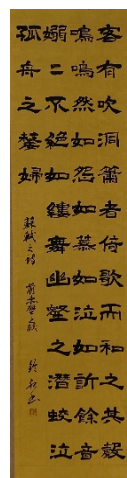 客有吹洞簫者倚歌而和之其聲
嗚嗚然如怨如慕如泣如訴餘音
嫋二不絕如縷舞幽壑之潛蛟泣
孤舟之嫠婦
蘇軾之詩 前赤壁賦